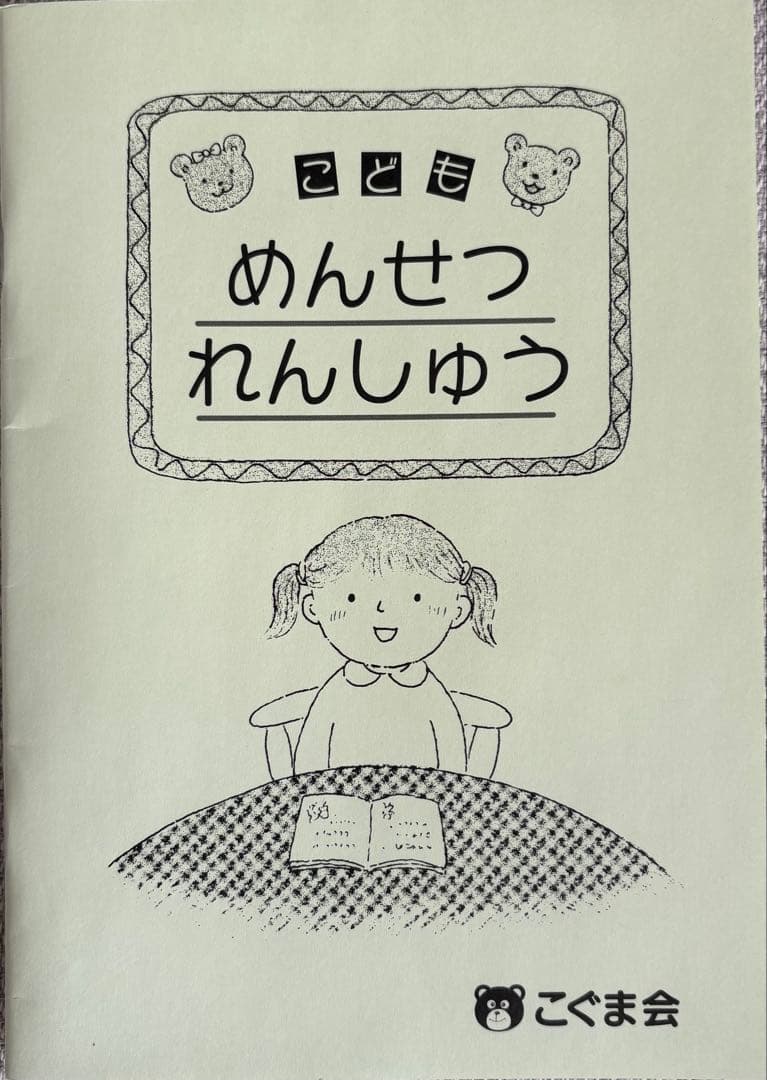 こども
めんせつ
れんしゅう
こぐま会